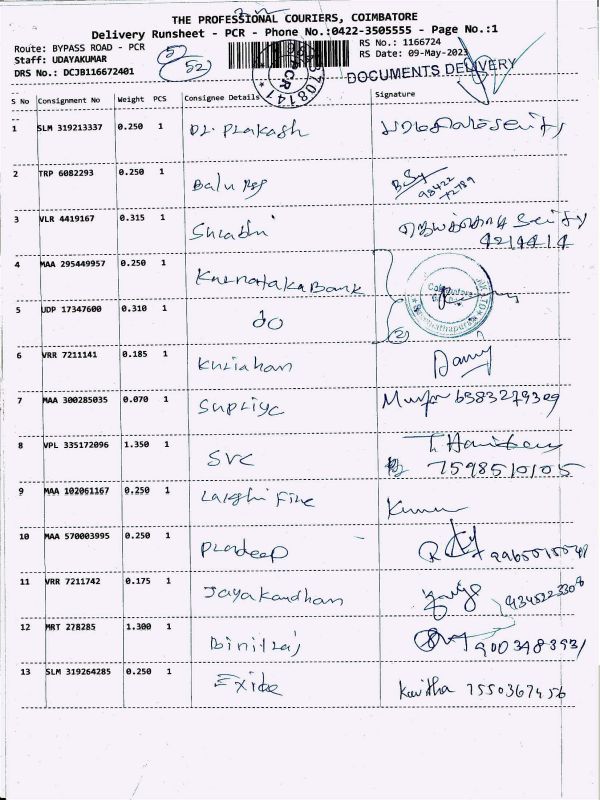 THE PROFESSIONAL COURIERS, COIMBATORE
Delivery Runsheet - PCR - Phone No.:0422-3505555 - Page No.:1
Route: BYPASS ROAD - PCR
RS No.: 1166724
Staff: UDAYAKUMAR
RS Date: 09-May-2023
DRS No.: DCJB116672401
52
DOCUMENTS DELIVERY
PCR
S No Consignment No Weight PCS Consignee Details Signature
1 SLM 319213337 0.250 1 Dr. Prakash
2 TRP 6082293 0.250 1 Balu
98422
72789
3 VLR 4419167 0.315 1
4214414
4 MAA 295449957 0.250 1 Karnataka Bank
5 UDP 17347600 0.310 1 do
(2)
6 VRR 7211141 0.185 1 Kuriahan
7 MAA 300285035 0.070 1 Supriya 6383279309
8 VPL 335172096 1.350 1 SVC
7598510105
9 MAA 102061167 0.250 1 Fire Kumar
10 MAA 570003995 0.250 1 Pradeep
11 VRR 7211742 0.175 1 Jayakandhan
12 MRT 278285 1.300 1 Binitraj
13 SLM 319264285 0.250 1 Exide Kavitha 7550367456